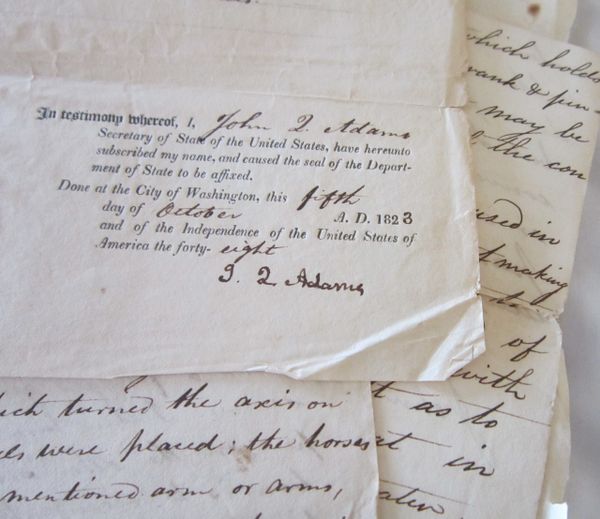 In testimony whereof, I, John Q. Adams
Secretary of State of the United States, have hereunto
subscribed my name, and caused the seal of the Depart-
ment of State to be affixed.
Done at the City of Washington, this fifth
day of October A. D. 1823
and of the Independence of the United States of
America the forty- eight
J. Q. Adams
which holds
crank & pin-
may be
the con
used in
making
to
of
with
as to
in
which turned the axis on
were placed; the horses
mentioned arm or arms,